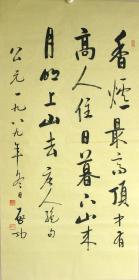 香爐最高頂中有
高人住日暮下山来
月明上山去唐人絶句
公元一九八九年冬日启功